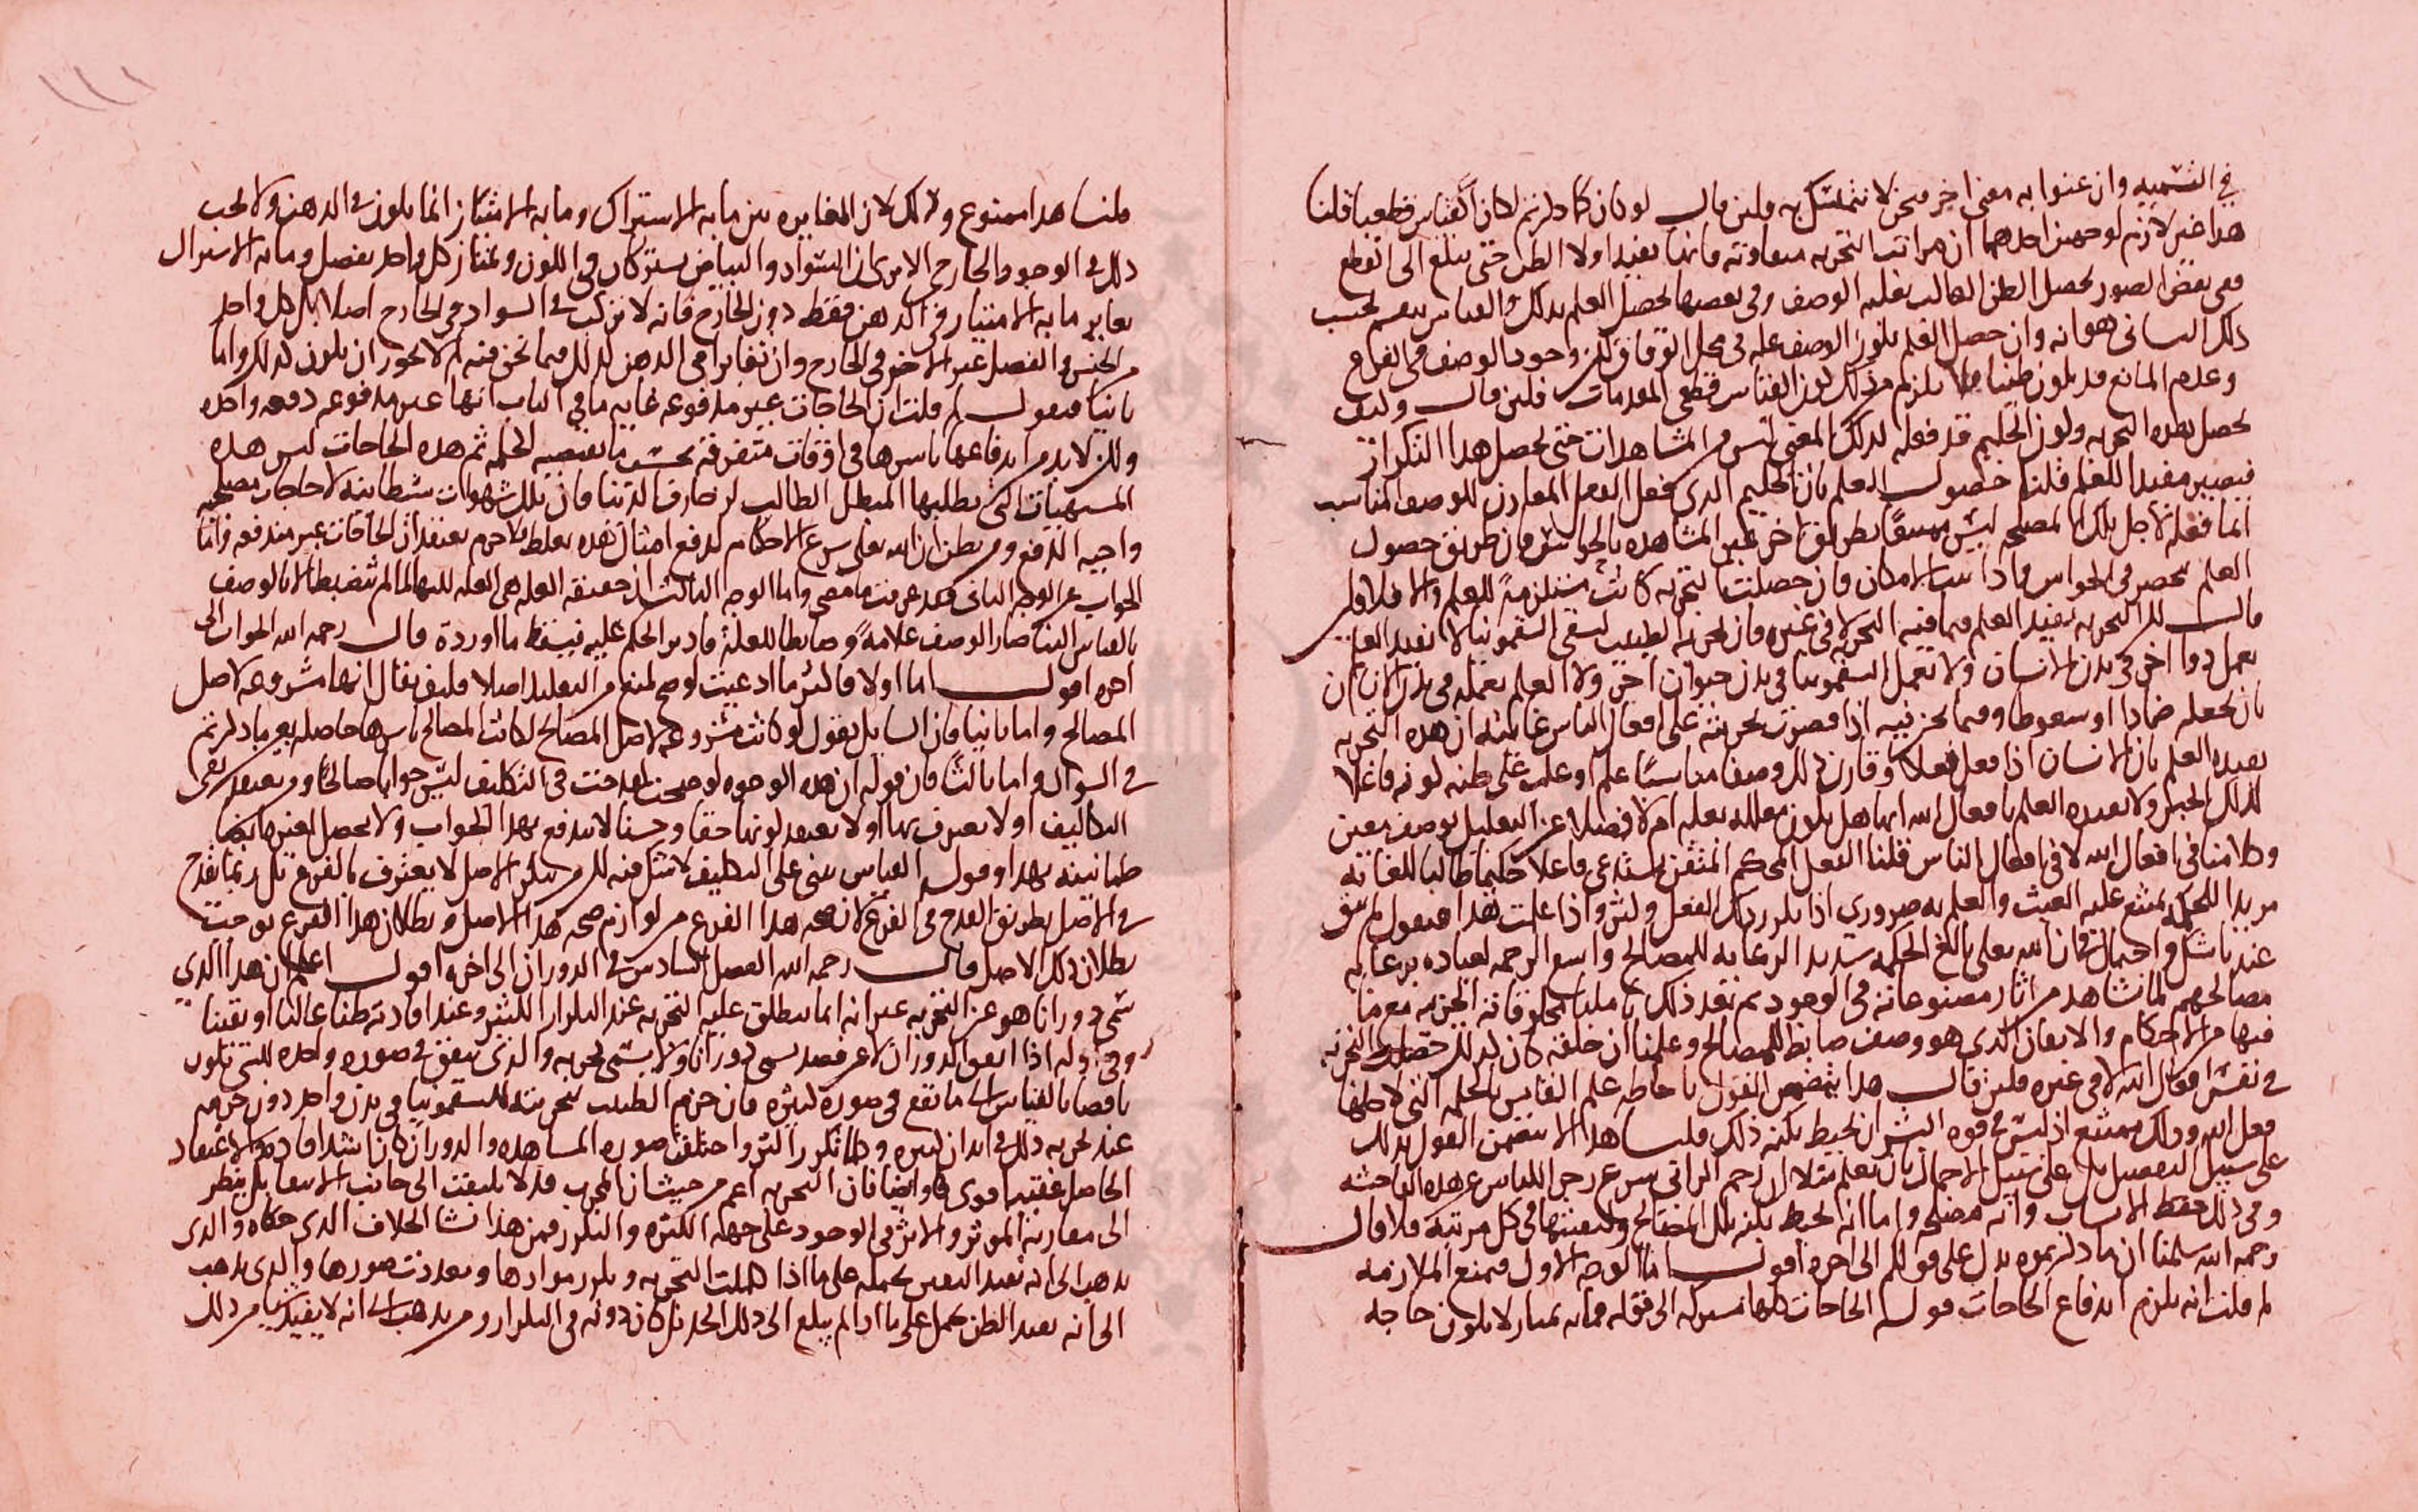 في التسميه وان عنوا به معنى اخر فنحن لا نتمسك به فلئن قال لو كان كما ذكرتم لكان القياس قطعيا قلنا
هذا غير لازم لوجهين احدهما ان مراتب التجربه متفاوته فانها تفيد اولا الظن حتى يبلغ الى القطع
ففي بعض الصور يحصل الظن الغالب بعليه الوصف وفي بعضها يحصل العلم بذلك والقياس ينقسم بحسب
ذلك الثاني هو انه وان حصل العلم بكون الوصف عله في محل الوفاق لكن وجود الوصف في الفرع
وعدم المانع قد يكون ظنيا فلا يلزم من ذلك كون القياس قطعي المقدمات فلئن قال وكيف
يحصل بهذه التجربه وكون الحكيم قد فعله لذلك المعنى ليس من المشاهدات حتى يحصل هذا التكرار
فيصير مفيدا للعلم قلنا حصول العلم بان الحكيم الذي فعل الفعل المقارن للوصف المناسب
انما فعله لاجل تلك المصلحه ليس بطريق اخر غير المشاهده بالحواس فان طريق حصول
العلم ينحصر في الحواس فان حصلت التجربه كانت مستلزمة للعلم والا فلا فلئن
قال التجربه تفيد العلم فيما فيه التجربه لا في غيره فان تجربه الطبيب لسقي السقمونيا لا تفيد العلم
بعمل دوا اخر في بدن الانسان ولا بعمل السقمونيا في بدن حيوان اخر ولا العلم بعمله في بدن الانسان
بان يجعله ضمادا او سعوطا وفيما نحن فيه اذا قصرت تجربته على افعال الناس غايته ان هذه التجربه
تفيده العلم بان الانسان اذا فعل فعلا وقارن ذلك وصفا مناسبا علم او غلب على ظنه كونه فاعلا
لذلك الجنس ولا تفيده العلم بافعال الله انها هل تكون معلله بعله ام لا فضلا عن التعليل بوصف معين
وكلامنا في افعال الله لا في افعال الناس قلنا الفعل المحكم المتقن يستدعي فاعلا حكيما طالبا للغايه
مريدا للحكمه يمتنع عليه العبث والعلم به ضروري اذا تكرر ذلك الفعل وكثر واذا علمت هذا فنقول لم يبق
عندنا شك واحتمال فان الله تعلى بالغ الحكمه شديد الرعايه للمصالح واسع الرحمه لعباده برعايه
مصالحهم لما نشاهد من اثار مصنوعاته في الوجود ثم بعد ذلك تاملنا مخلوقاته
فيها من الاحكام والاتقان الذي هو وصف ضابط للمصالح وعلمنا ان خلقه كان لذلك حصلت التجربه
في نفس افعال الله لا في غيره فلئن قال هذا يتضمن القول باحاطه علم القايس بالحكمه التي لاجلها
فعل الله وذلك ممتنع اذ ليس في قوه البشر ان يحيط بكنه ذلك قلنا هذا لا يتضمن القول بذلك
على سبيل التفصيل بل على سبيل الاجمال بان نعلم مثلا ان رجم الزاني شرع زجر الناس عن هذه الفاحشه
وفي ذلك حفظ الانساب وانه مصلحه واما انه يحيط بكنه تلك المصالح وكيفيتها في كل مرتبه فلا قال
رحمه الله سلمنا ان ما ذكرتموه يدل على قولكم الى اخره اقول اما الوجه الاول فمنع الملازمه
لم قلت انه يلزم اندفاع الحاجات قوله الحاجات كلها مشتركه الى قوله فما به يمتاز لا يكون حاجه
قلنا هذا ممنوع وذلك لان المغايره بين ما به الاشتراك وما به الامتياز انما يكون في الذهن ولا يجب
ذلك في الوجود الخارجي الا ترى ان السواد والبياض يشتركان في اللون ويمتاز كل واحد بفصل وما به الاشتراك
يغاير ما به الامتياز في الذهن فقط دون الخارج فانه لا تركب في السواد في الخارج اصلا بل كل واحد
من الجنس والفصل عين الاخر في الخارج وان تغايرا في الذهن لذلك فيما نحن فيه لم لا يجوز ان يكون كذلك واما
ثانيا فنقول لم قلت ان الحاجات غير مدفوعه غايه ما في الباب انها غير مدفوعه دفعه واحده
ولكن لا بد من اندفاعها باسرها في اوقات متفرقه بحسب ما تقتضيه الحكمه ثم هذه الحاجات ليس هذه
المشتهيات التي يطلبها المبطل الطالب لزخارف الدنيا فان تلك شهوات شيطانيه لا حاجات مصلحيه
واجبه الدفع ومن يظن ان الله تعلى شرع الاحكام لدفع امثال هذه بغلط فلا جرم يعتقد ان الحاجات غير مندفعه واما
الجواب عن الوجه الثاني فقد عرفت ما مضى واما الوجه الثالث ان حقيقه العله هي العله لكنها لما لم تنضبط الا بالوصف
بالقياس الينا صار الوصف علامة وضابطا للعلة فادير الحكم عليه فيسقط ما اورده قال رحمه الله الجواب الى
اخره اقول اما اولا فلئن ما ادعيت لو صح لمنع من التعليل اصلا فكيف يقال انها مشروعه لاصل
المصالح واما ثانيا فان السايل يقول لو كانت مشروعه لاصل المصالح لكانت المصالح باسرها حاصله بغير ما ذكرتم
في السوال واما ثالثا فان قوله ان هذه الوجوه لو صحت لقدحت في التكليف ليس جوابا صالحا ومن يعتقد نفي
التكاليف او لا يعترف بها او لا يعتقد كونها حقا وحسنا لا يندفع بهذا الجواب ولا يحصل لغيره ايضا
طمانينه بهذا وقوله القياس مبني على التكليف لا شك فيه لكن منكر الاصل لا يعترف بالفرع بل ربما قدح
في الاصل بطريق القدح في الفرع لان صحه هذا الفرع من لوازم صحه هذا الاصل وبطلان هذا الفرع يوجب
بطلان ذلك الاصل قال رحمه الله الفصل السادس في الدوران الى اخره اقول اعلم ان هذا الذي
سمي دورانا هو عين التجربه غير انه انما ينطلق عليه التجربه عند التكرار الكثير وعند افادته ظنا غالبا او يقينا
وفي اوله اذا اتفق الدوران لا عن قصد يسمى دورانا ولا يسمى تجربه والذي يتفق في صوره واحده للشي يكون
ناقصا بالقياس الى ما يقع في صوره كثيره فان جزم الطبيب بتجربته للسقمونيا في بدن واحد دون جزمه
عند تجربه ذلك في ابدان كثيره وكلما تكرر اكثر واختلفت صوره المشاهده والدوران كان اشد افاده والاعتقاد
الحاصل عقيبها اقوى وايضا فان التجربه اعم من حيث ان المجرب قد لا يلتفت الى جانب الانتفا بل ينظر
الى مقارنه الموثر والاثر في الوجود على جهه الكثره والتكرر فمن هذا نشا الخلاف الذي حكاه والذي
يذهب الى انه يفيد اليقين يحمله على ما اذا كملت التجربه وتكرر موادها وتعددت صورها والذي يذهب
الى انه يفيد الظن يحمل على ما اذا لم يبلغ الى ذلك الحد بل كان دونه في التكرار ومن يذهب الى انه لا يفيد شيا من ذلك